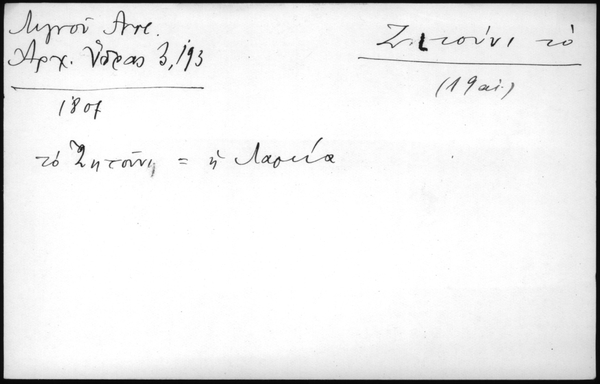 Λιγνού Αντ.
Αρχ. Ύδρας 3,193
1807
Ζιτούνι τό
(19 αἰ.)
τό Ζητούνι = ἡ Λαμία